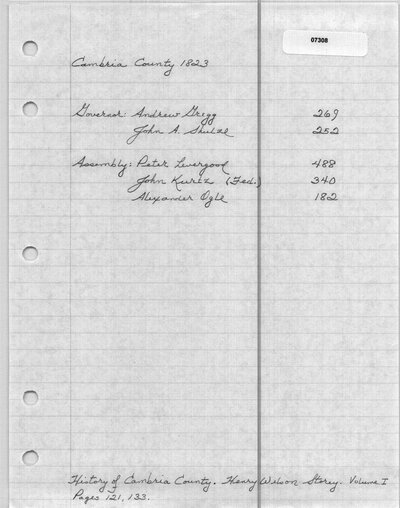 07308
Cambria County 1823
Governor: Andrew Gregg 269
John A. Shulze 252
Assembly: Peter Levergood 488
John Kurtz (Fed.) 340
Alexander Ogle 182
History of Cambria County. Henry Wilson Storey. Volume I
Pages 121, 133.